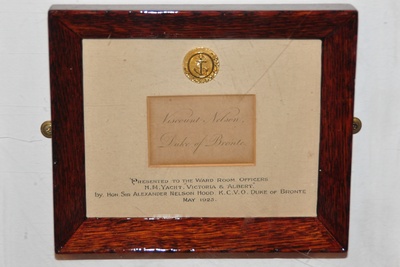 Viscount Nelson
Duke of Bronte
PRESENTED TO THE WARD ROOM OFFICERS
H.M. YACHT. VICTORIA & ALBERT,
by, HON SIR ALEXANDER NELSON HOOD. K.C.V.O. DUKE OF BRONTE
MAY